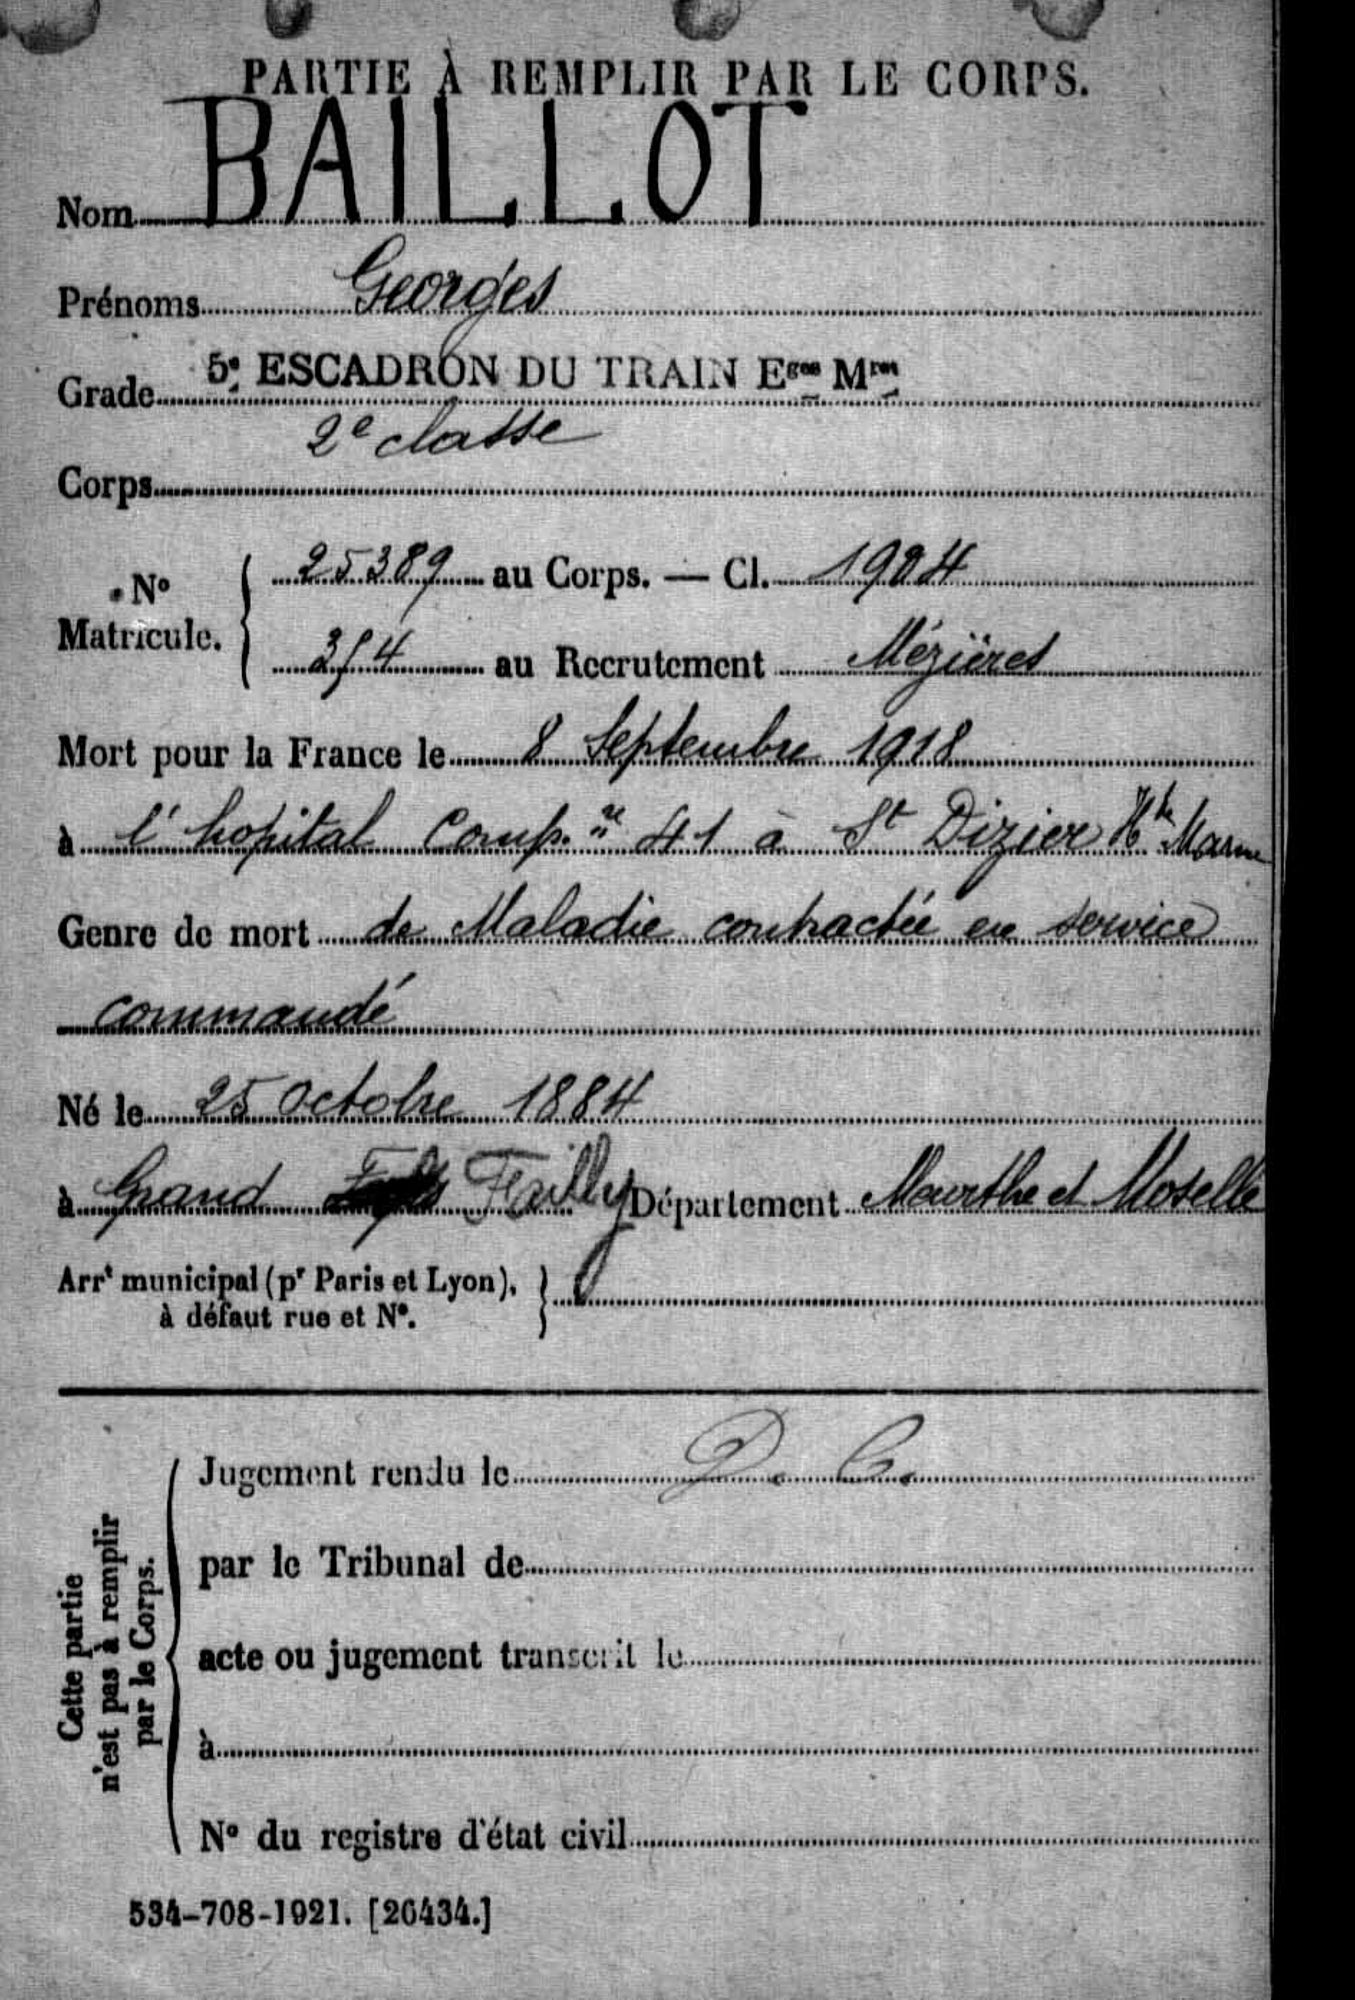 PARTIE À REMPLIR PAR LE CORPS.
Nom BAILLOT
Prénoms Georges
Grade 5e ESCADRON DU TRAIN Eges Mres
2e classe
Corps
No Matricule. 25389 au Corps. — Cl. 1904
au Recrutement Mézières
Mort pour la France le 8 Septembre 1918
à l'hopital Comp. re 41 à St Dizier Hte Marne
Genre de mort de Maladie contractée en service
commandé
Né le 25 octobre 1884
à Grand Failly Département Meurthe et Moselle
Arrt municipal (pr Paris et Lyon),
à défaut rue et No.
Cette partie
n'est pas à remplir
par le Corps.
Jugement rendu le D. C.
par le Tribunal de
acte ou jugement transcrit le
à
No du registre d'état civil
534-708-1921. [26434.]